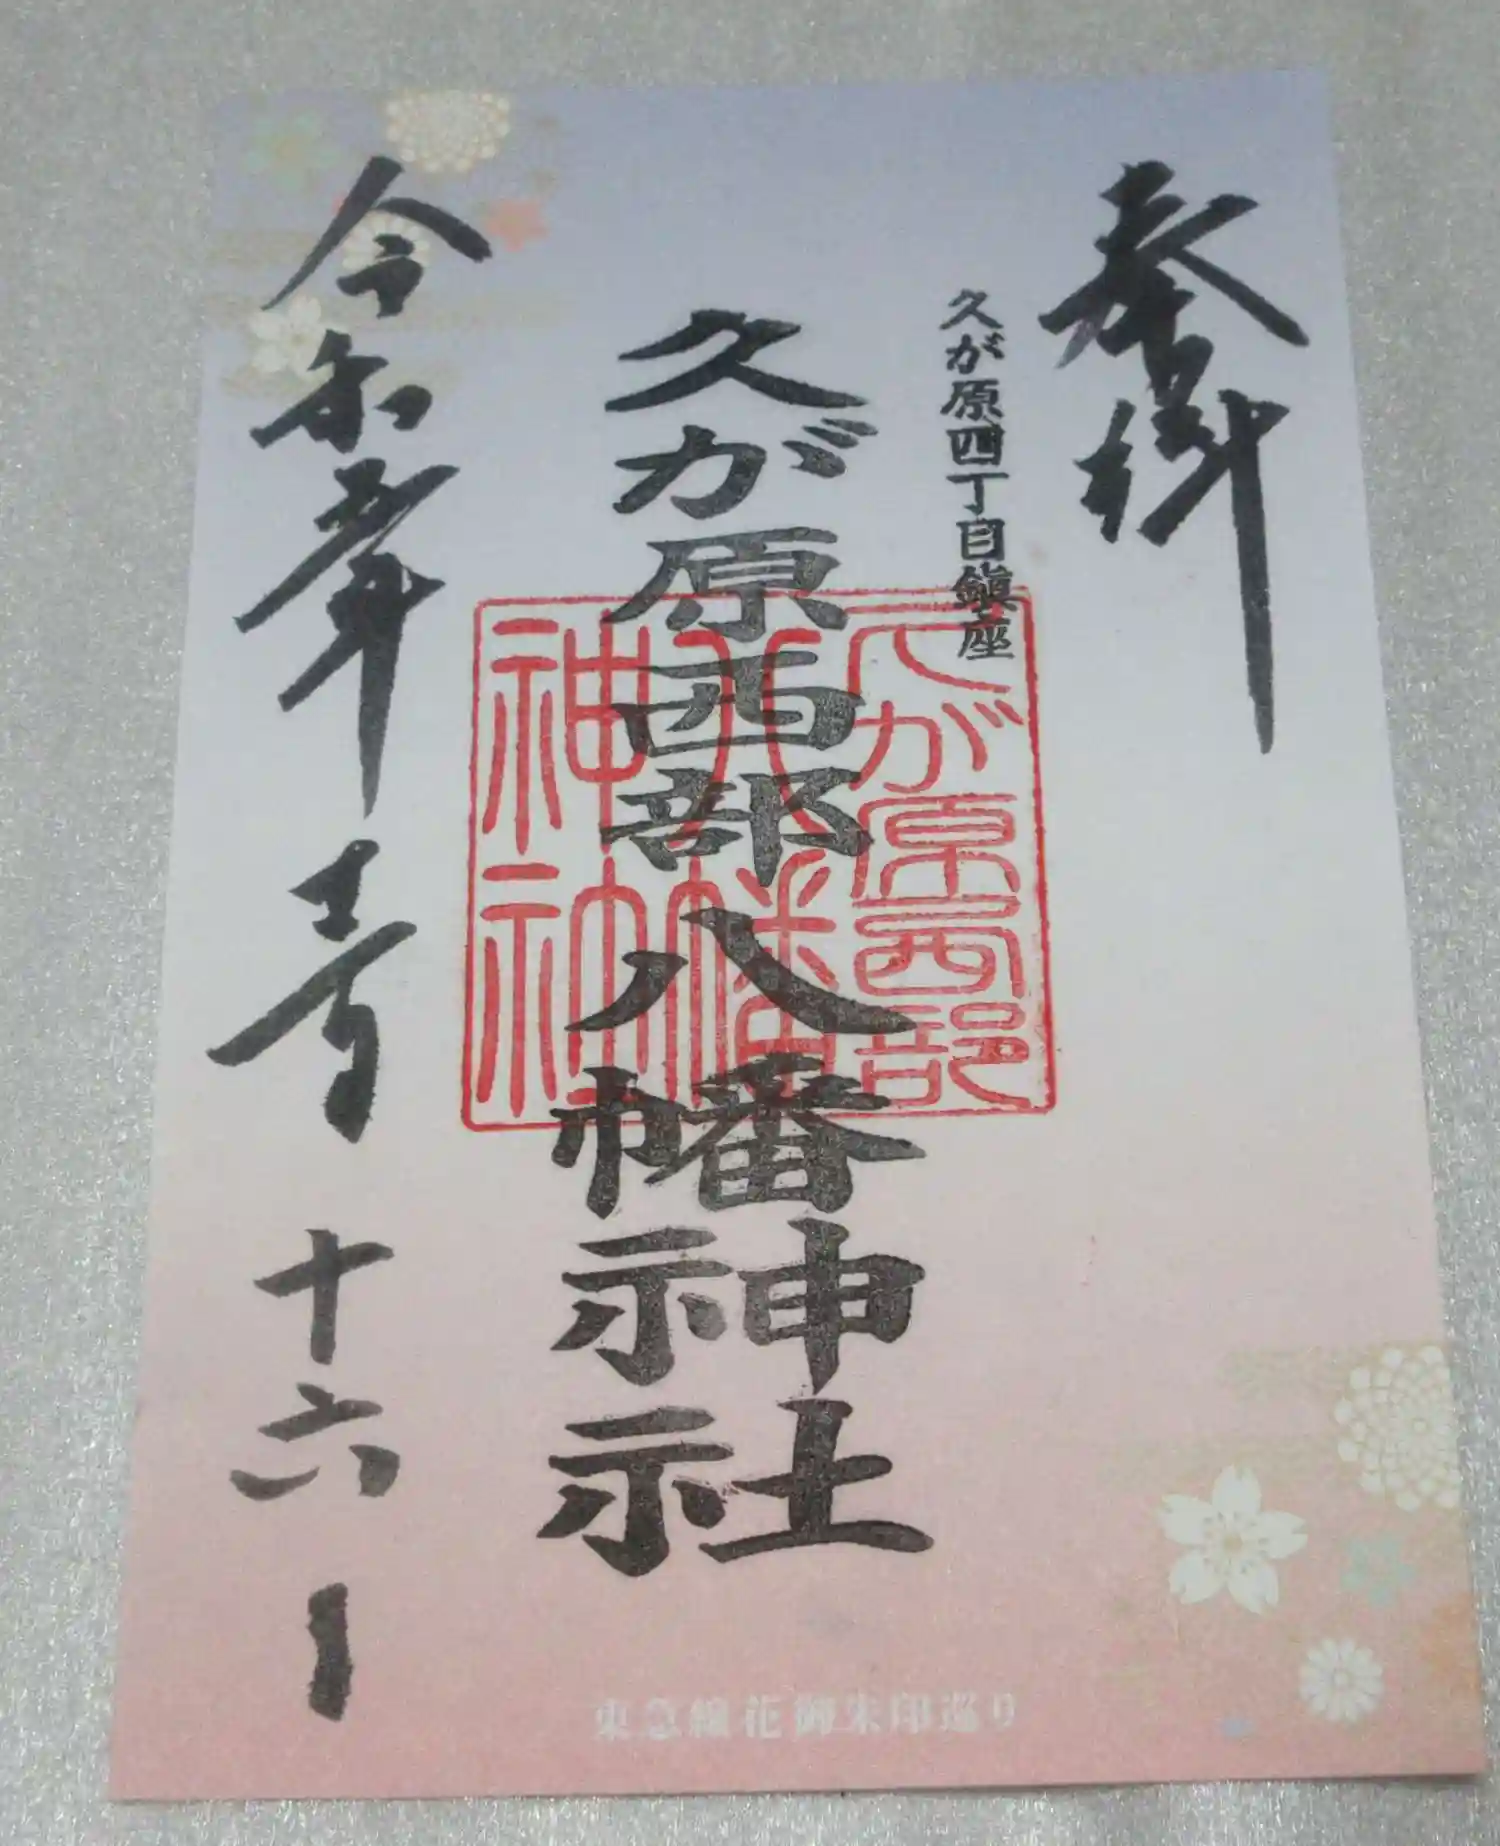 奉拝
久が原四丁目鎮座
久が原西部八幡神社
久が原西部
八幡
神社
令和
十六日
東急線花御朱印巡り